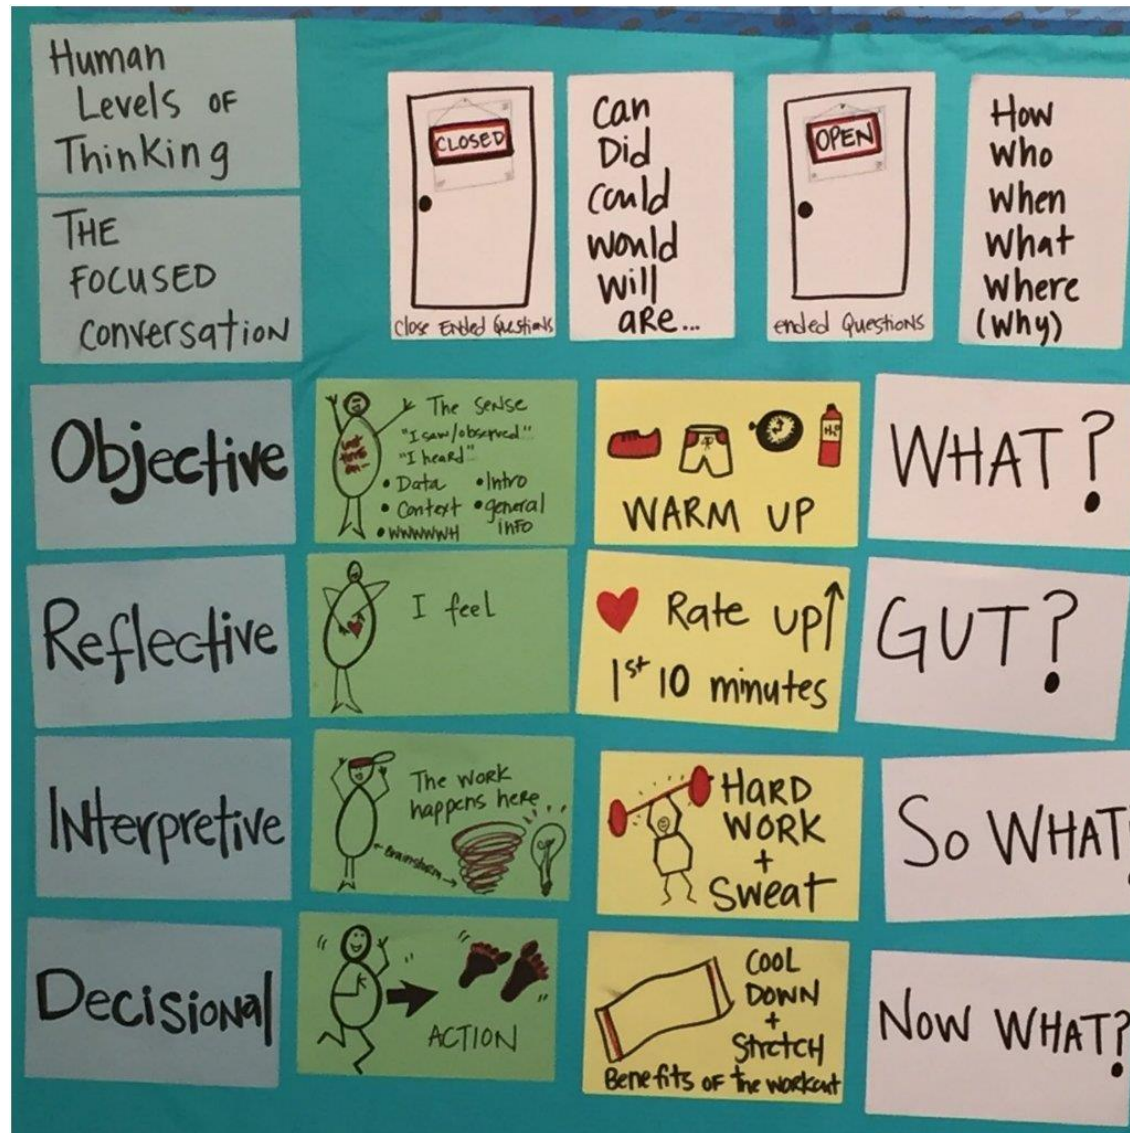 Human
Levels OF
Thinking
THE
FOCUSED
Conversation
CLOSED
Close Ended Questions
Can
Did
Could
Would
Will
aRe...
OPEN
ended Questions
How
Who
When
What
Where
(Why)
Objective
The Sense
"I saw/observed"
"I heard"
• Data • Intro
• Context • general
• WWWWWH info
WARM UP
WHAT?
Reflective
I feel
Rate up↑
1st 10 minutes
GUT?
INterpretive
The WORK
happens here...
Brainstorm
HARD
WORK
+
Sweat
So WHAT
Decisional
ACTION
COOL
DOWN
+
Stretch
Benefits OF the workout
Now WHAT?